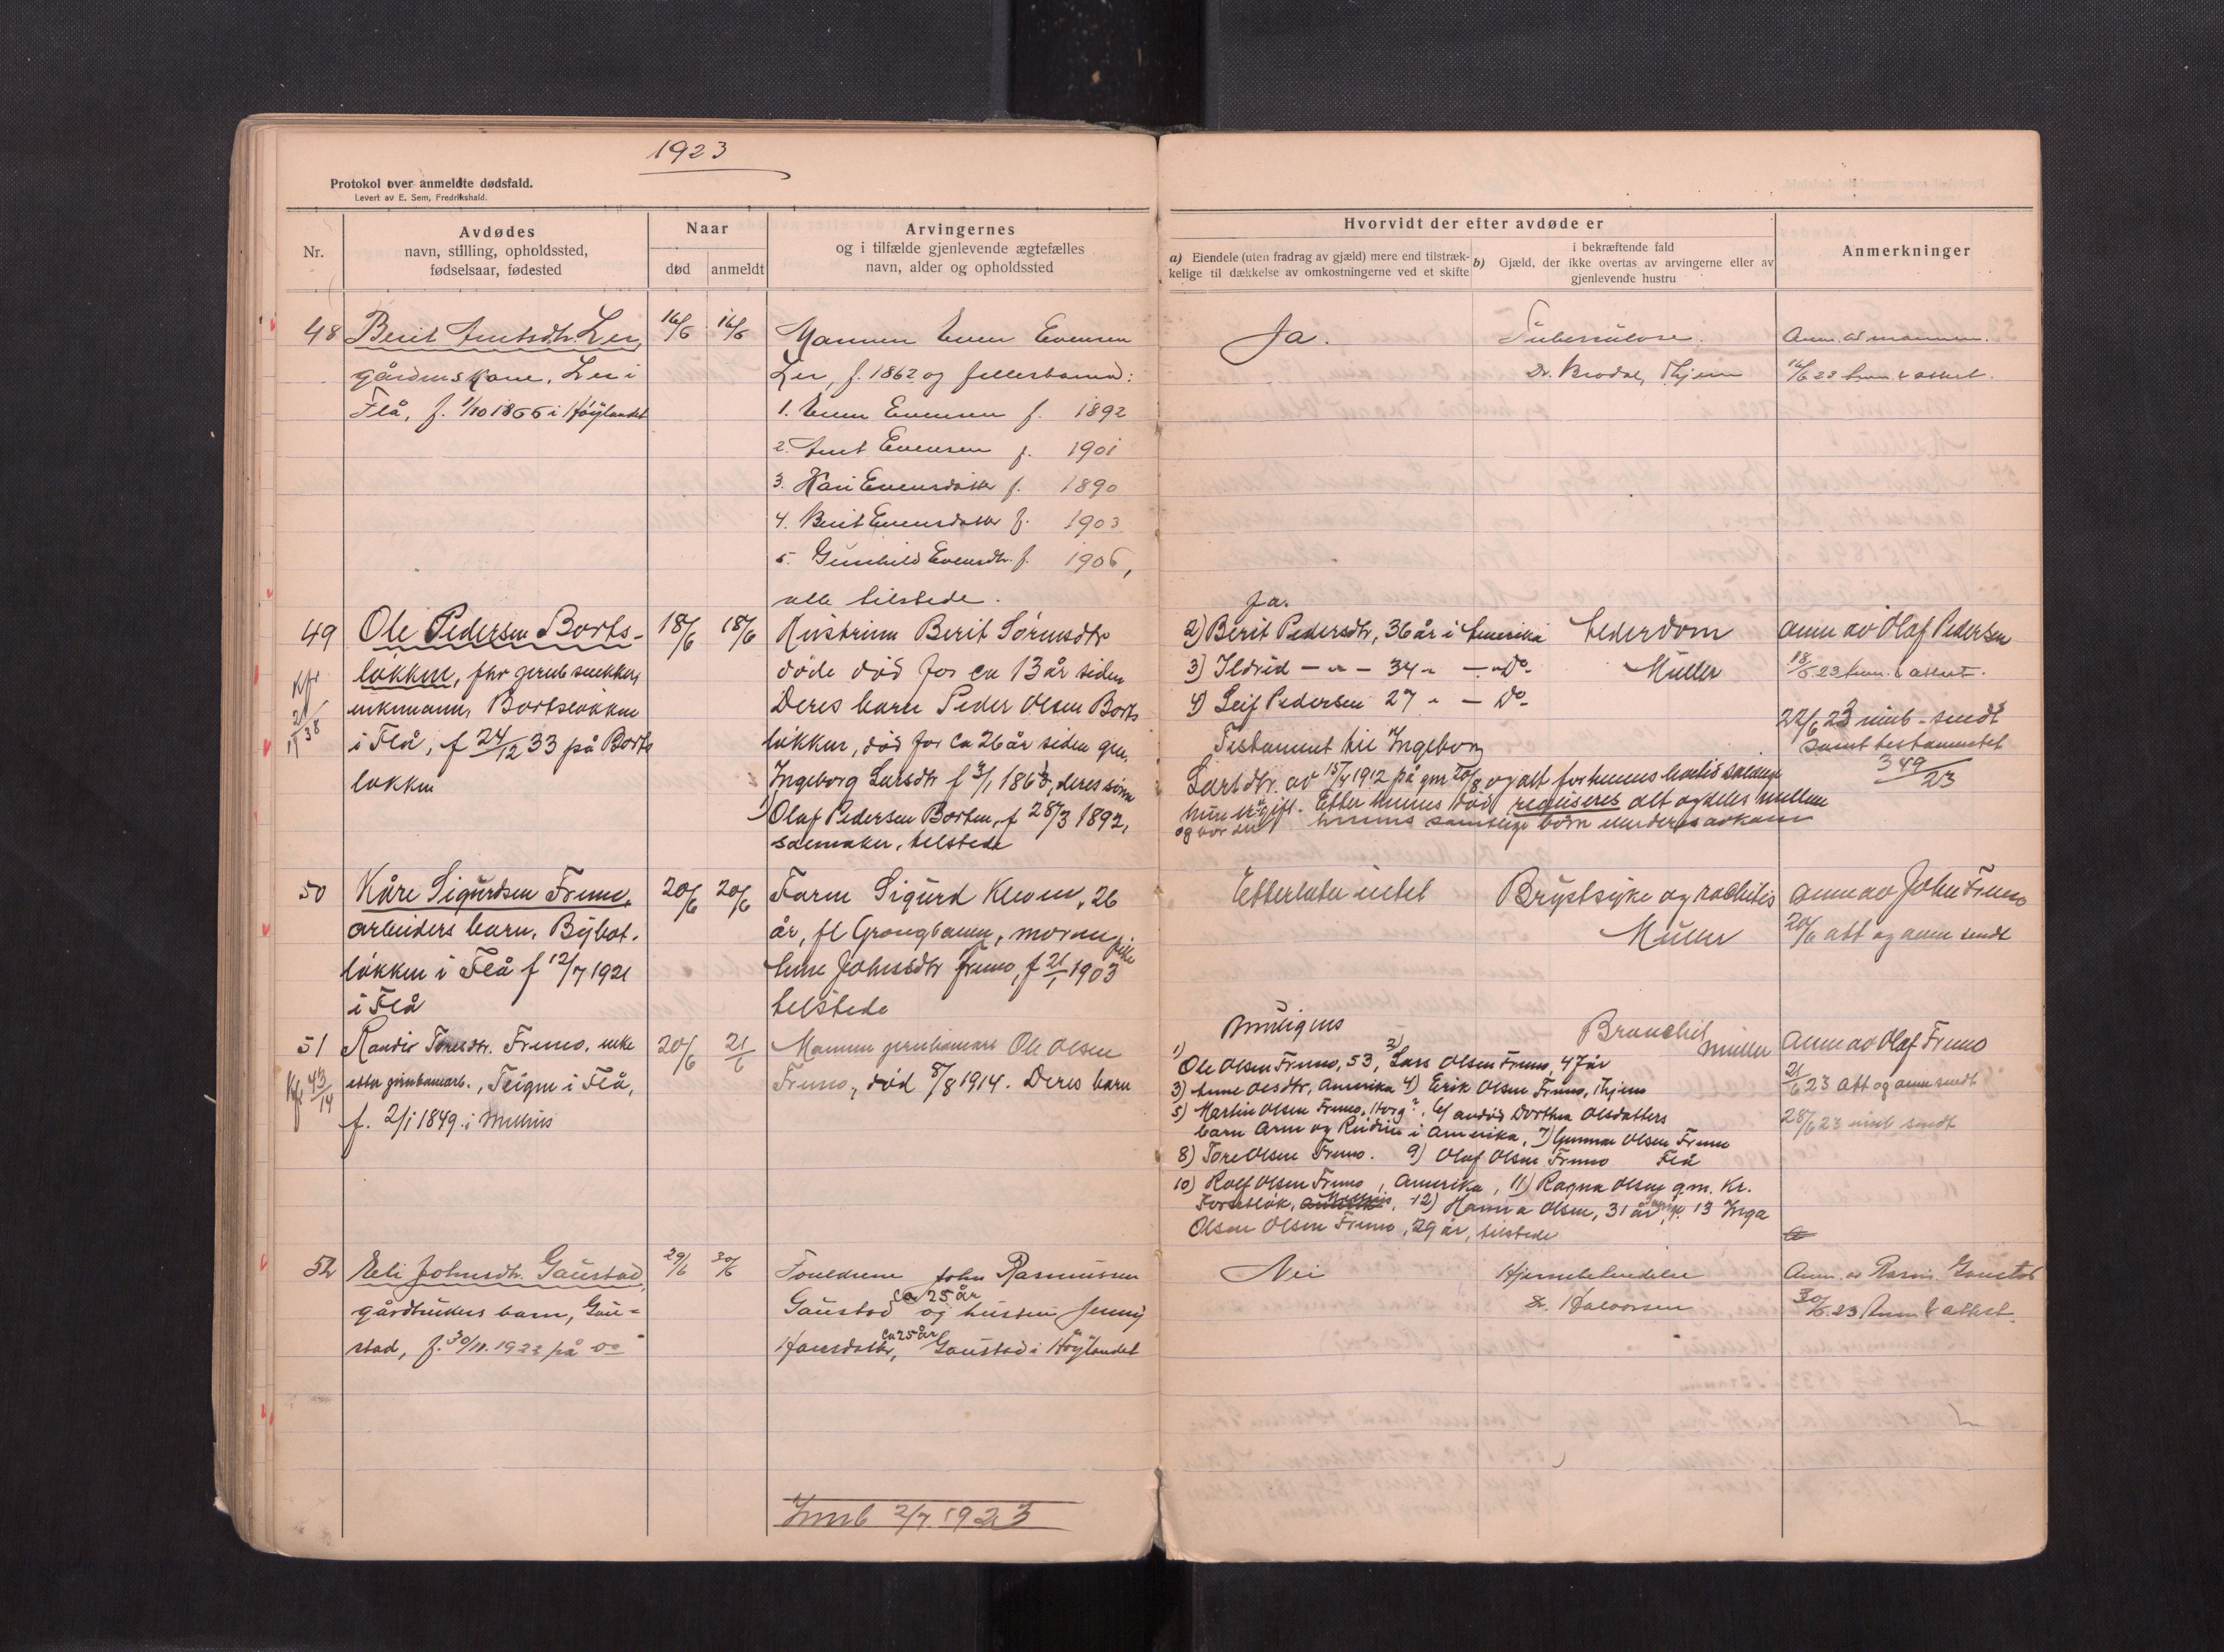 1923
Protokol over anmeldte dødsfald.
Levert av E. Sem, Fredrikshald.
Nr.
Avdødes
navn, stilling, opholdssted,
fødselsaar, fødested
Naar
død
anmeldt
Arvingernes
og i tilfælde gjenlevende ægtefælles
navn, alder og opholdssted
Hvorvidt der efter avdøde er
a) Eiendele (uten fradrag av gjæld) mere end tilstræk-
kelige til dækkelse av omkostningerne ved et skifte
b) i bekræftende fald
Gjæld, der ikke overtas av arvingerne eller av
gjenlevende hustru
Anmerkninger
48
Berit Arntsdtr. Ler,
gårdmskone, Ler i
Flå, f. 1/10 1866 i Høylandet
16/6
16/6
Mannen Even Evensen
Ler, f. 1862 og fellesbarna:
1. Even Evensen f. 1892
2. Arnt Evensen f. 1901
3. Kari Evensdatter f. 1890
4. Berit Evensdatter f. 1903
5. Gunhild Evensdtr. f. 1906,
alle tilstede.
Ja.
Tuberkulose.
Dr. Brodal,
Anm. av mannen.
16/6 23 attest.
49
Ole Pedersen Borts-
løkken, fhv
Bortsløkken
i Flå, f 24/12 33 på Borts
løkken
18/6
18/6
Hustruen Berit Sørensdtr
døde død for ca 13 år siden
Deres barn Peder Olsen Borts
løkken, død for ca 26 år siden
Ingeborg Larsdtr f deres sønn
1) Olaf Pedersen Borten, f 28/3 1892,
salmaker, tilstede
Ja.
2) Berit Pedersdtr, 36 år i Amerika
3) Ildrid - " - 34 " - " Do -
4) Leif Pedersen 27 " - Do -
Testament til Ingeborg
Larsdtr. av 15/4 1912 på
hun ugift. Etter hennes død alt og deles mellem
hennes samtlige børn
Alderdom
Müller
anm av Olaf Pedersen
18/6 23 attest.
22/6 23 sendt
samt testamentet
349/23
50
Kåre Sigurdsen Fremo,
arbeiders barn,
løkken i Flå f 12/7 1921
i Flå
20/6
20/6
Faren Sigurd 26
år, moren pike
Anne Johnsdtr Fremo, f 21/1 1903
tilstede
Etterlater intet
Brystsyke og rachitis
Müller
anm av John Fremo
20/6 att og anm sendt
51
Randi Toresdtr. Fremo, enke
etter Teigen i Flå,
f. 2/1 1849 i Melhus
20/6
21/6
Mannen Ole Olsen
Fremo, død 8/8 1914. Deres barn
muligens
1) Ole Olsen Fremo, 53, 2) Lars Olsen Fremo, 47 år
3) Anne Olsdtr, Amerika 4) Erik Olsen Fremo,
5) Martin Olsen Fremo, 6) avdød Dorthea Olsdatters
barn i Amerika, 7) Gunnar Olsen Fremo
8) Tore Olsen Fremo. 9) Olaf Olsen Fremo Flå
10) Rolf Olsen Fremo, Amerika, 11) Ragna Olsen gm. Kr.
12) Hanna Olsen, 31 år, 13 Inga
Olsen Olsen Fremo, 29 år, tilstede
Bronchit
Müller
Anm av Olaf Fremo
21/6 23 att og anm sendt
28/6 23 sendt
52
Eli Johnsdtr. Gaustad,
gårdbrukers barn, Gau-
stad, f. 30/11. 1922 på do
29/6
30/6
Foreldrene John Rasmussen
Gaustad ca 25 år og hustru Jenny
Hansdatter, ca 25 år Gaustad i Høylandet
Nei
Hjernebetendelse
Dr. Halvorsen
Anm. av Rasm. Gaustad
30/6. 23 Anm & attest.
Innb 2/7 1923